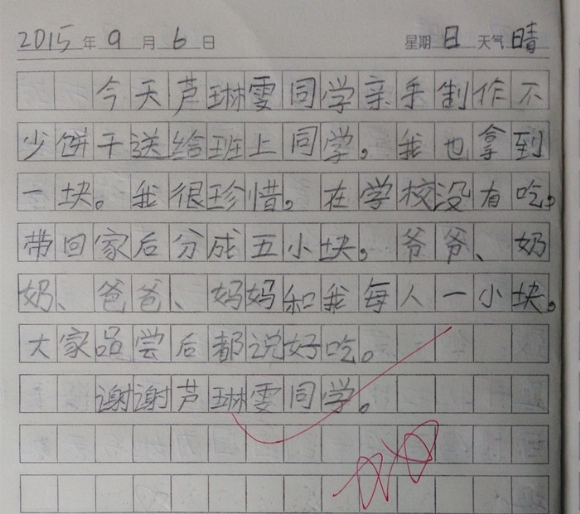 2015年9月6日 星期日 天气晴
今天芦琳雯同学亲手制作不
少饼干送给班上同学。我也拿到
一块。我很珍惜。在学校没有吃。
带回家后分成五小块。爷爷、奶
奶、爸爸、妈妈和我每人一小块。
大家品尝后都说好吃。
谢谢芦琳雯同学。